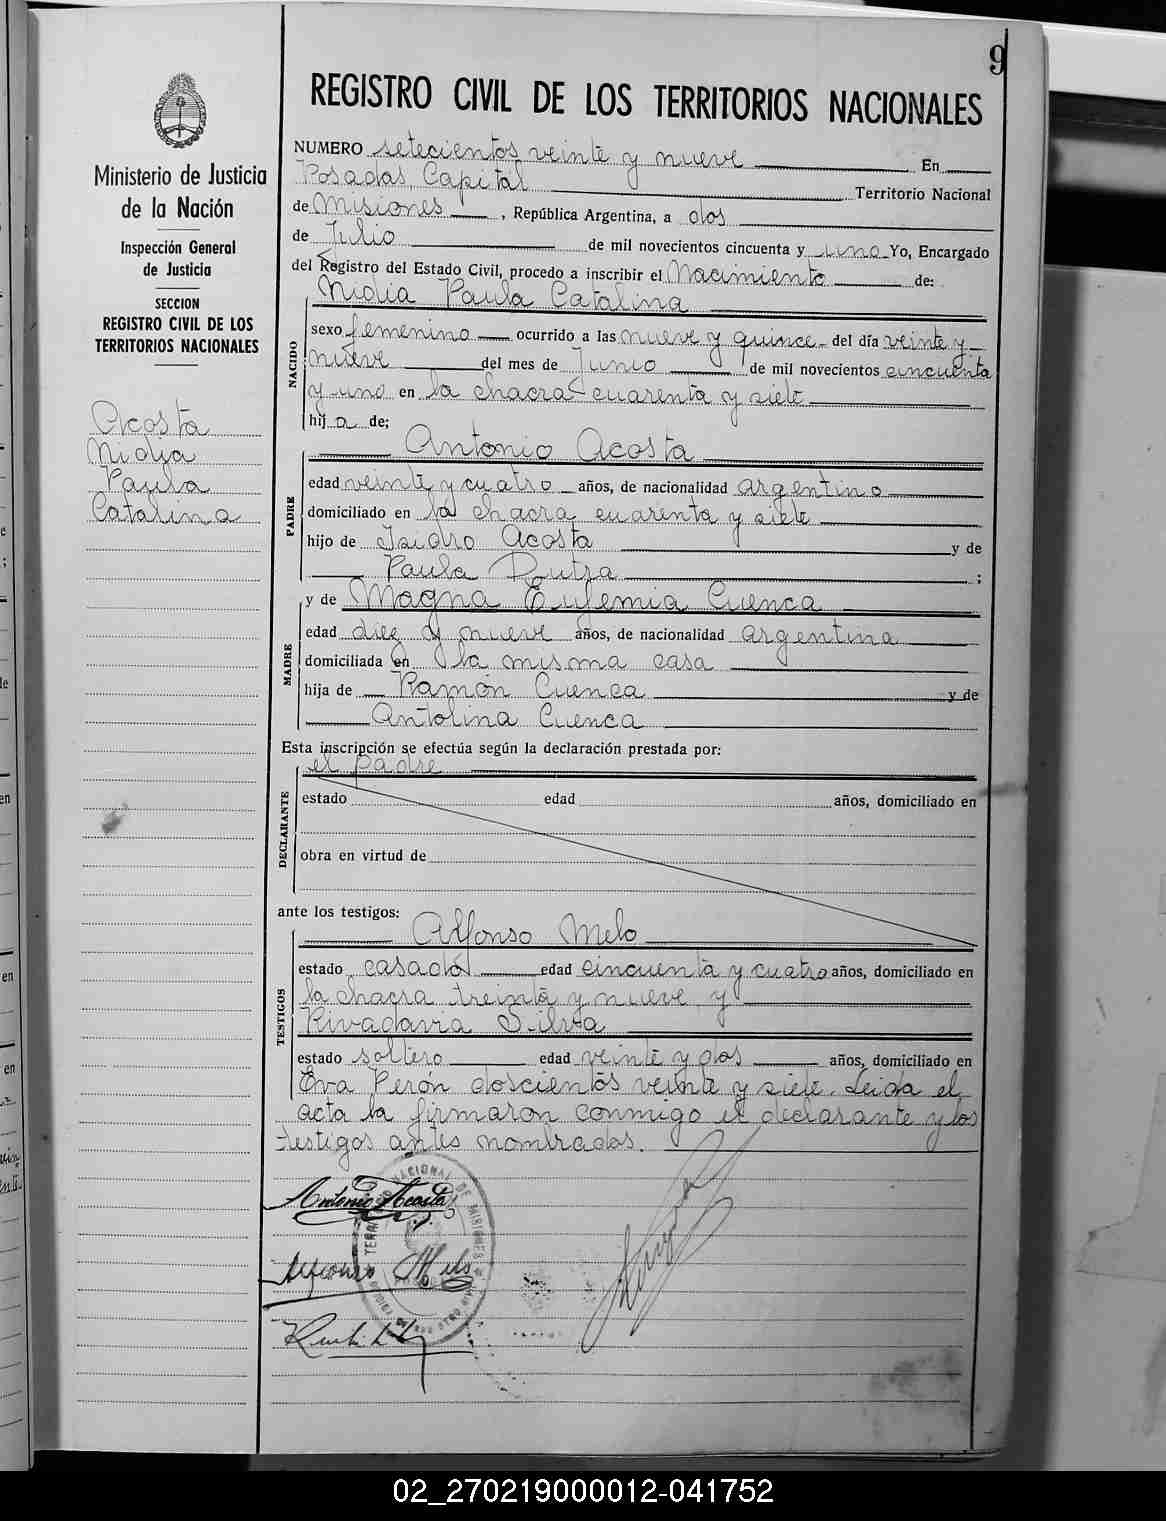 9
REGISTRO CIVIL DE LOS TERRITORIOS NACIONALES
Ministerio de Justicia
de la Nación
Inspección General
de Justicia
SECCION
REGISTRO CIVIL DE LOS
TERRITORIOS NACIONALES
Acosta
Nidia
Paula
Catalina
NUMERO setecientos veinte y nueve En
Posadas, Capital Territorio Nacional
de Misiones, República Argentina, a dos
de Julio de mil novecientos cincuenta y uno Yo, Encargado
del Registro del Estado Civil, procedo a inscribir el Nacimiento de:
Nidia Paula Catalina
NACIDO
sexo femenino ocurrido a las nueve y quince del día veinte y
nueve del mes de Junio de mil novecientos cincuenta
y uno en la chacra cuarenta y siete
hija de;
Antonio Acosta
PADRE
edad veinte y cuatro años, de nacionalidad argentino
domiciliado en la chacra cuarenta y siete
hijo de Isidro Acosta y de
Paula Dutra ;
y de Magna Eufemia Cuenca
MADRE
edad diez y nueve años, de nacionalidad argentina
domiciliada en la misma casa
hija de Ramón Cuenca y de
Antolina Cuenca
Esta inscripción se efectúa según la declaración prestada por:
el padre
DECLARANTE
estado edad años, domiciliado en
obra en virtud de
ante los testigos:
Alfonso Melo
TESTIGOS
estado casado edad cincuenta y cuatro años, domiciliado en
la chacra treinta y nueve y
Rivadavia Silva
estado soltero edad veinte y dos años, domiciliado en
Eva Perón doscientos veinte y siete. Leida el
acta la firmaron conmigo el declarante y los
testigos antes nombrados.
Antonio Acosta
Alfonso Melo
02_270219000012-041752